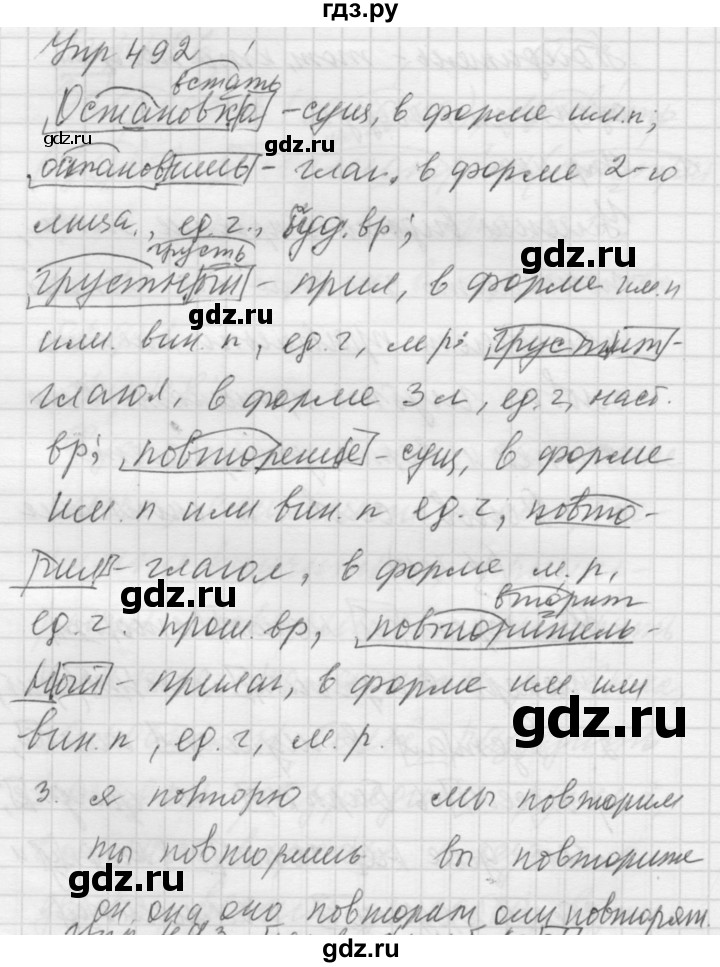 гдз.ру
Упр 492
встать
Остановка - сущ, в форме им.п;
gdz.ru
gdz.ru
остановишь - глаг, в форме 2-го
лица., ед.ч., буд.вр;
грусть
грустный - прил, в форме им.п
gdz.ru
или вин.п, ед.ч, м р; грустит -
gdz.ru
глагол, в форме 3 л, ед.ч, наст.
вр; повторение - сущ, в форме
gdz.ru
им.п или вин.п ед.ч, повто-
рил - глагол, в форме м.р,
gdz.ru
вторит
ед.ч. прош.вр, повторитель-
ный - прилаг, в форме им. или
gdz.ru
вин.п, ед.ч, м.р.
3. я повторю мы повторим
ты повторишь вы повторите
gdz.ru
он, она, оно повторит они повторят.
gdz.ru
gdz.ru